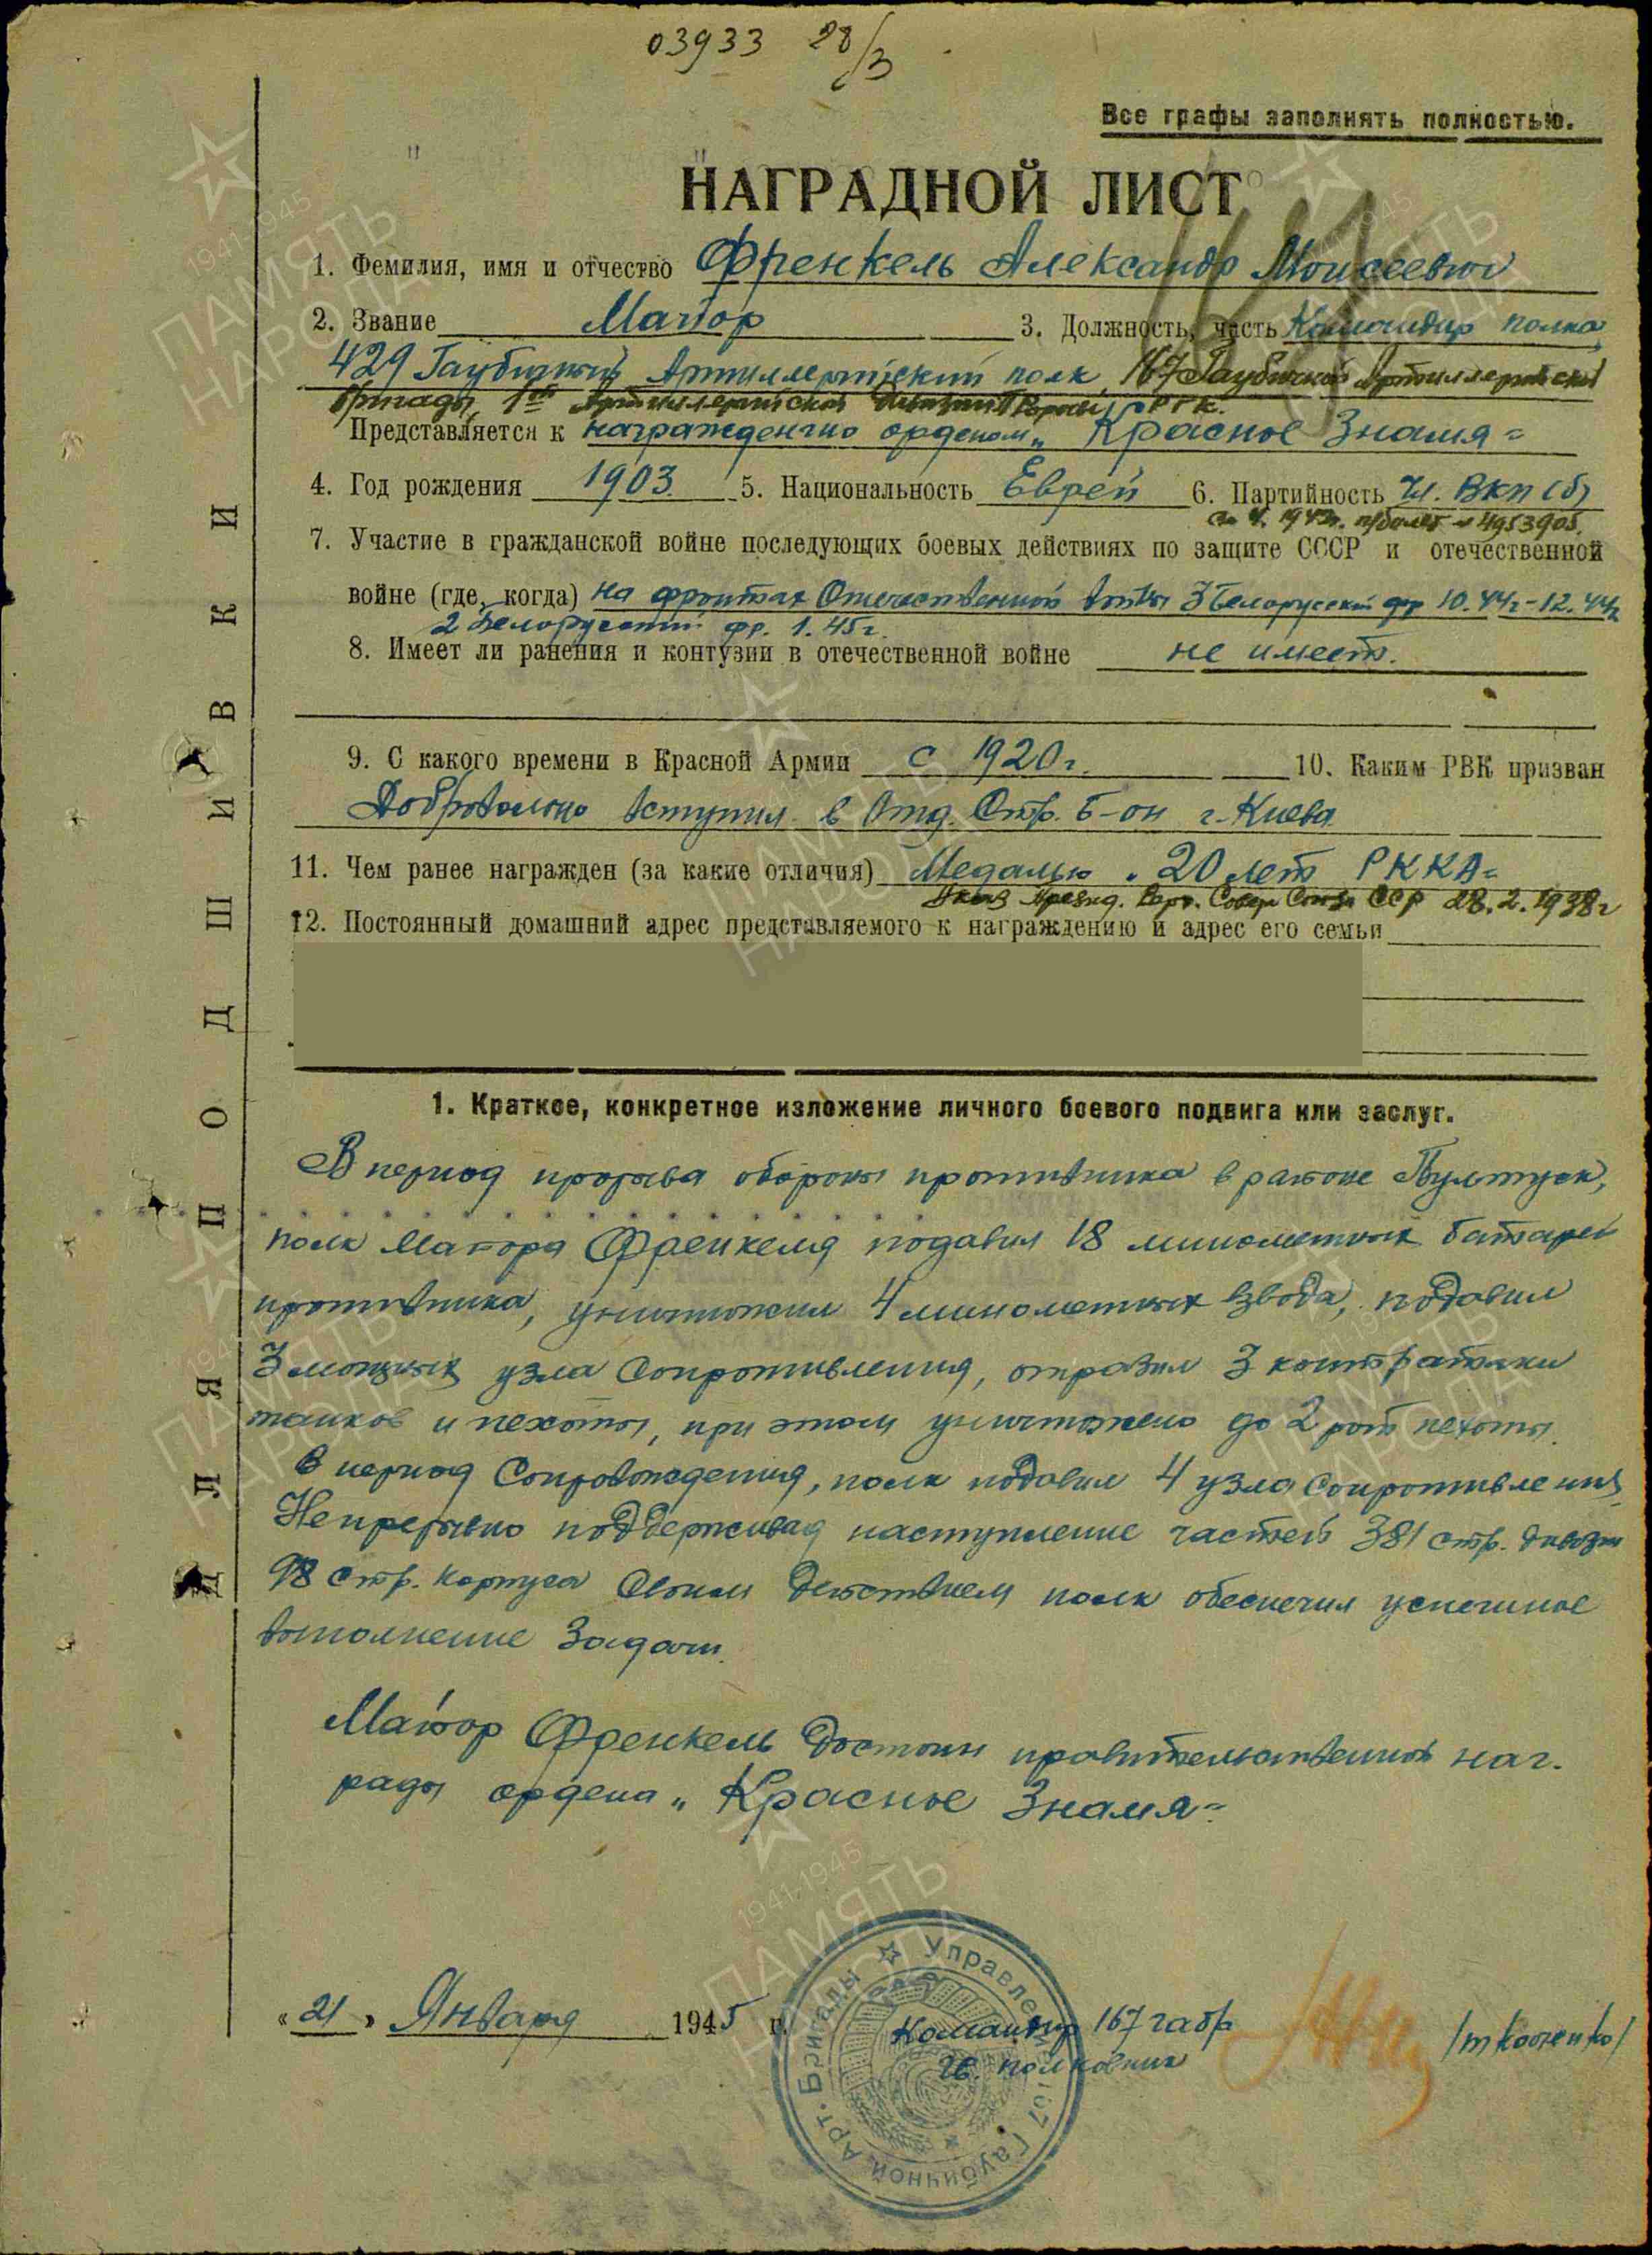 03933 28/3
Все графы заполнять полностью.
НАГРАДНОЙ ЛИСТ
1. Фемилия, имя и отчество Френкель Александр Моисеевич
2. Звание Майор 3. Должность, часть Командир полка
429 Гаубичный Артиллерийский полк, 167 Гаубичной Артиллерийской
бригады, 1ой Артиллерийской РГК.
Представляется к награждению орденом „Красное Знамя"
4. Год рождения 1903. 5. Национальность Еврей 6. Партийность Чл. ВКП(б)
1942г. п/билет № 4953905.
7. Участие в гражданской войне последующих боевых действиях по защите СССР и отечественной
войне (где, когда) на фронтах Отечественной войны 3 Белорусский фр 10.44г-12.44г
2 Белорусский фр. 1.45г.
8. Имеет ли ранения и контузии в отечественной войне не имеет.
9. С какого времени в Красной Армии с 1920г. 10. Каким РВК призван
Добровольно вступил в Отд. Стр. Б-он г. Киева
11. Чем ранее награжден (за какие отличия) Медалью „20 лет РККА"
Указ Презид. Верх. Совета Союза ССР 28.2.1938г
12. Постоянный домашний адрес представляемого к награждению и адрес его семьи
1. Краткое, конкретное изложение личного боевого подвига или заслуг.
В период прорыва обороны противника в районе Пултуск,
полк Майора Френкеля подавил 18 минометных батарей
противника, уничтожил 4 минометных взвода, подавил
3 мощных узла сопротивления, отразил 3 контратаки
танков и пехоты, при этом уничтожено до 2 рот пехоты.
В период Сопровождения, полк подавил 4 узла сопротивления.
Непрерывно поддерживая наступление частей 381 стр. дивизии
98 стр. корпуса Своим действием полк обеспечил успешное
выполнение задачи.
Майор Френкель достоин правительственной наг-
рады ордена „Красное Знамя"
« 21 » Января 1945 г.
Командир 167 габр
Гв. полковник /Ткаченко/
Управление 167 Гаубичной Арт. Бригады
ДЛЯ ПОДШИВКИ
1941-1945
ПАМЯТЬ
НАРОДА